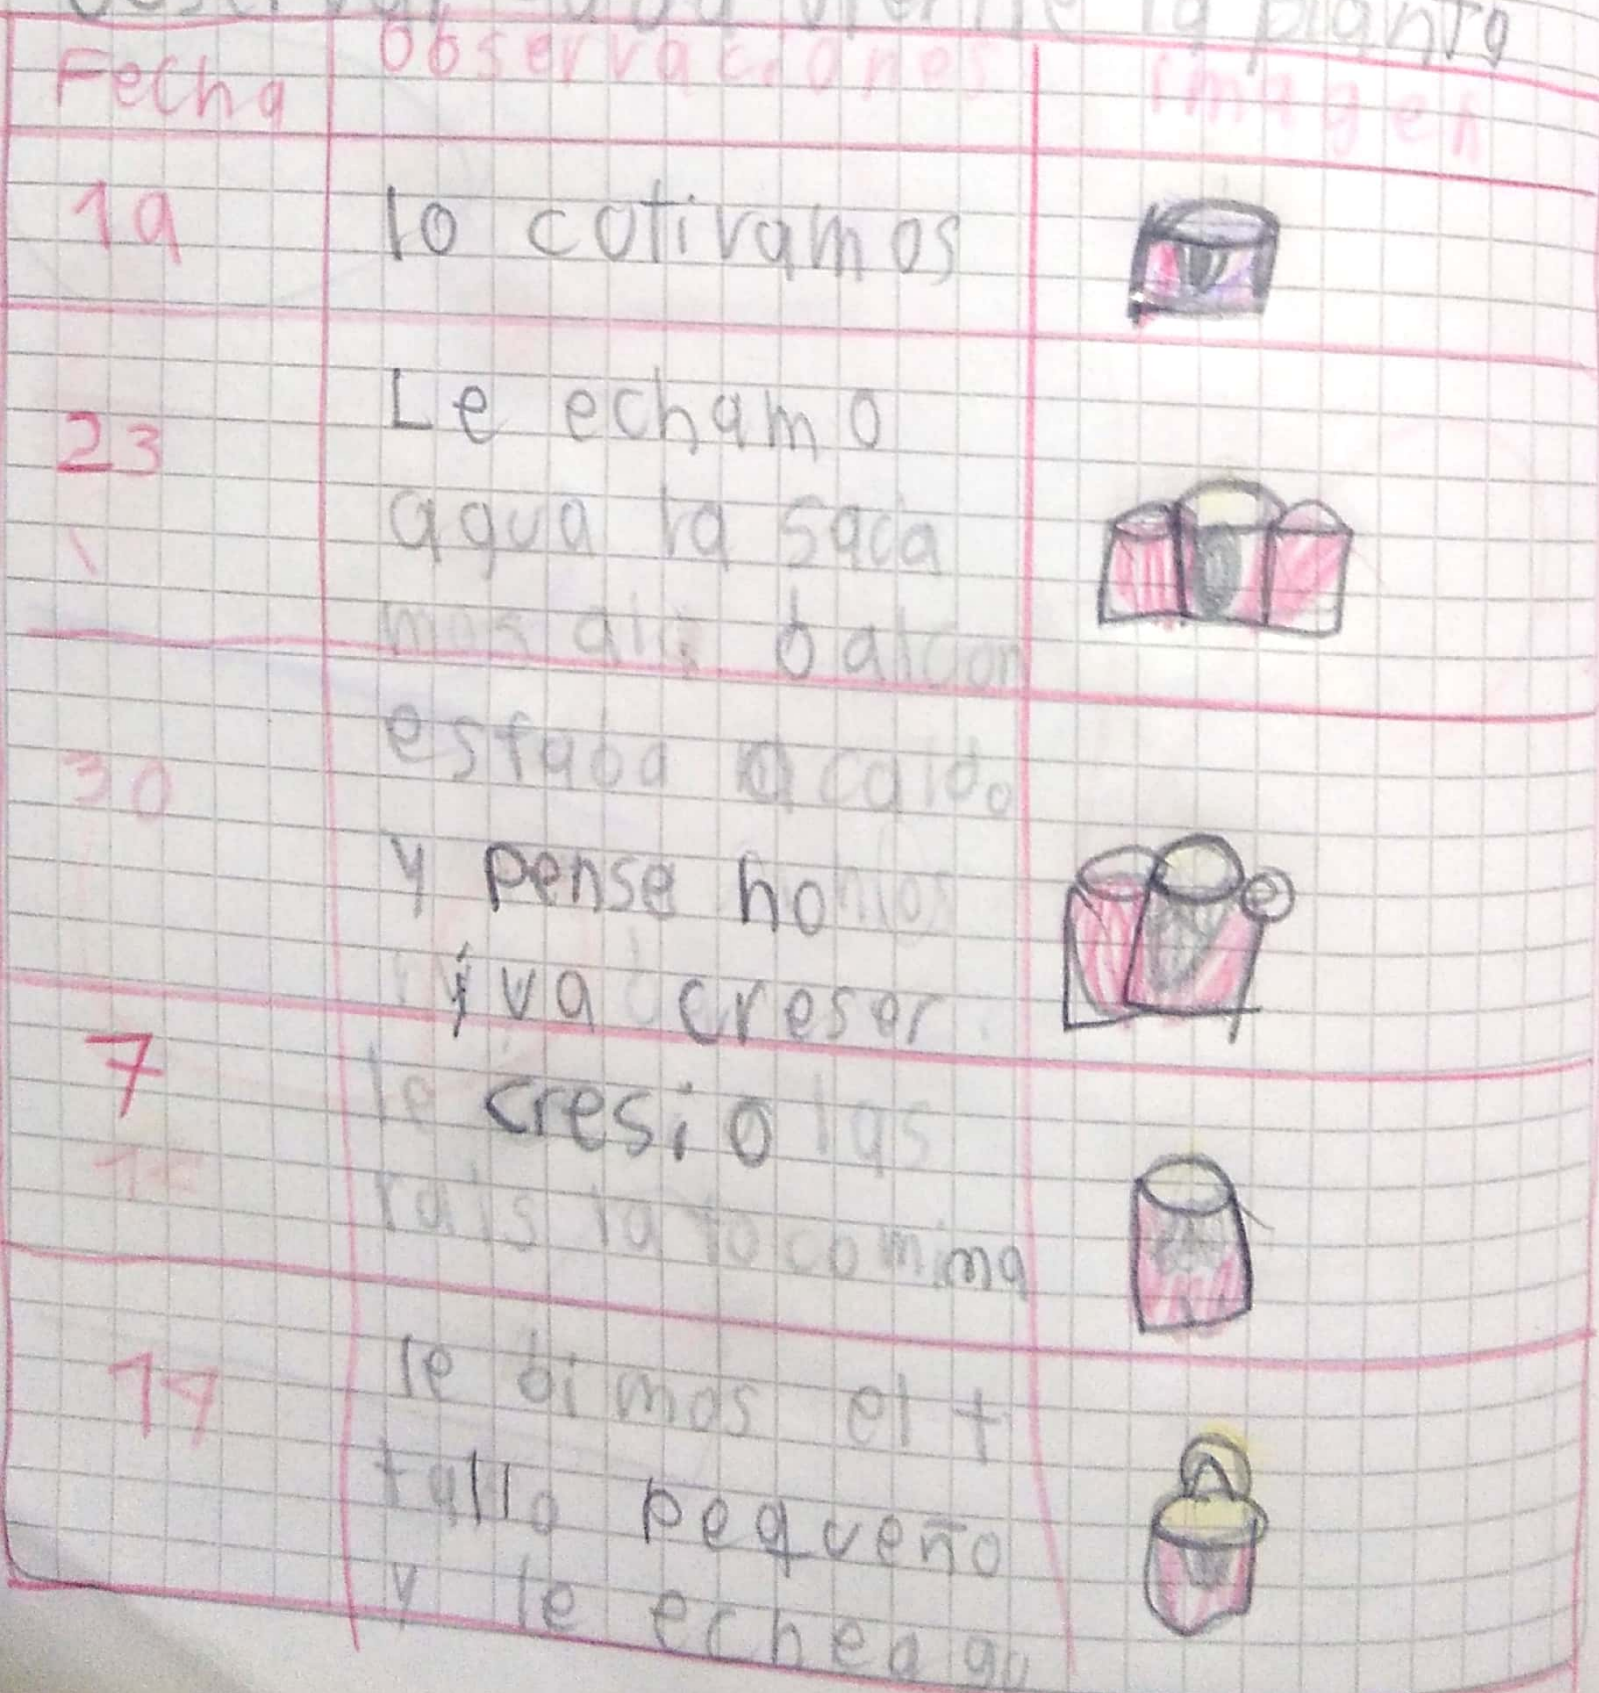 la planta
Fecha observaciones imagen
19 lo cotivamos
Le echamo
23 agua la saca
mos balcon
estaba caido
30
y pense ho
iva creser
7 le cresio las
rais la to comima
le bimos el t
14
tallo pequeño
y le echeagu